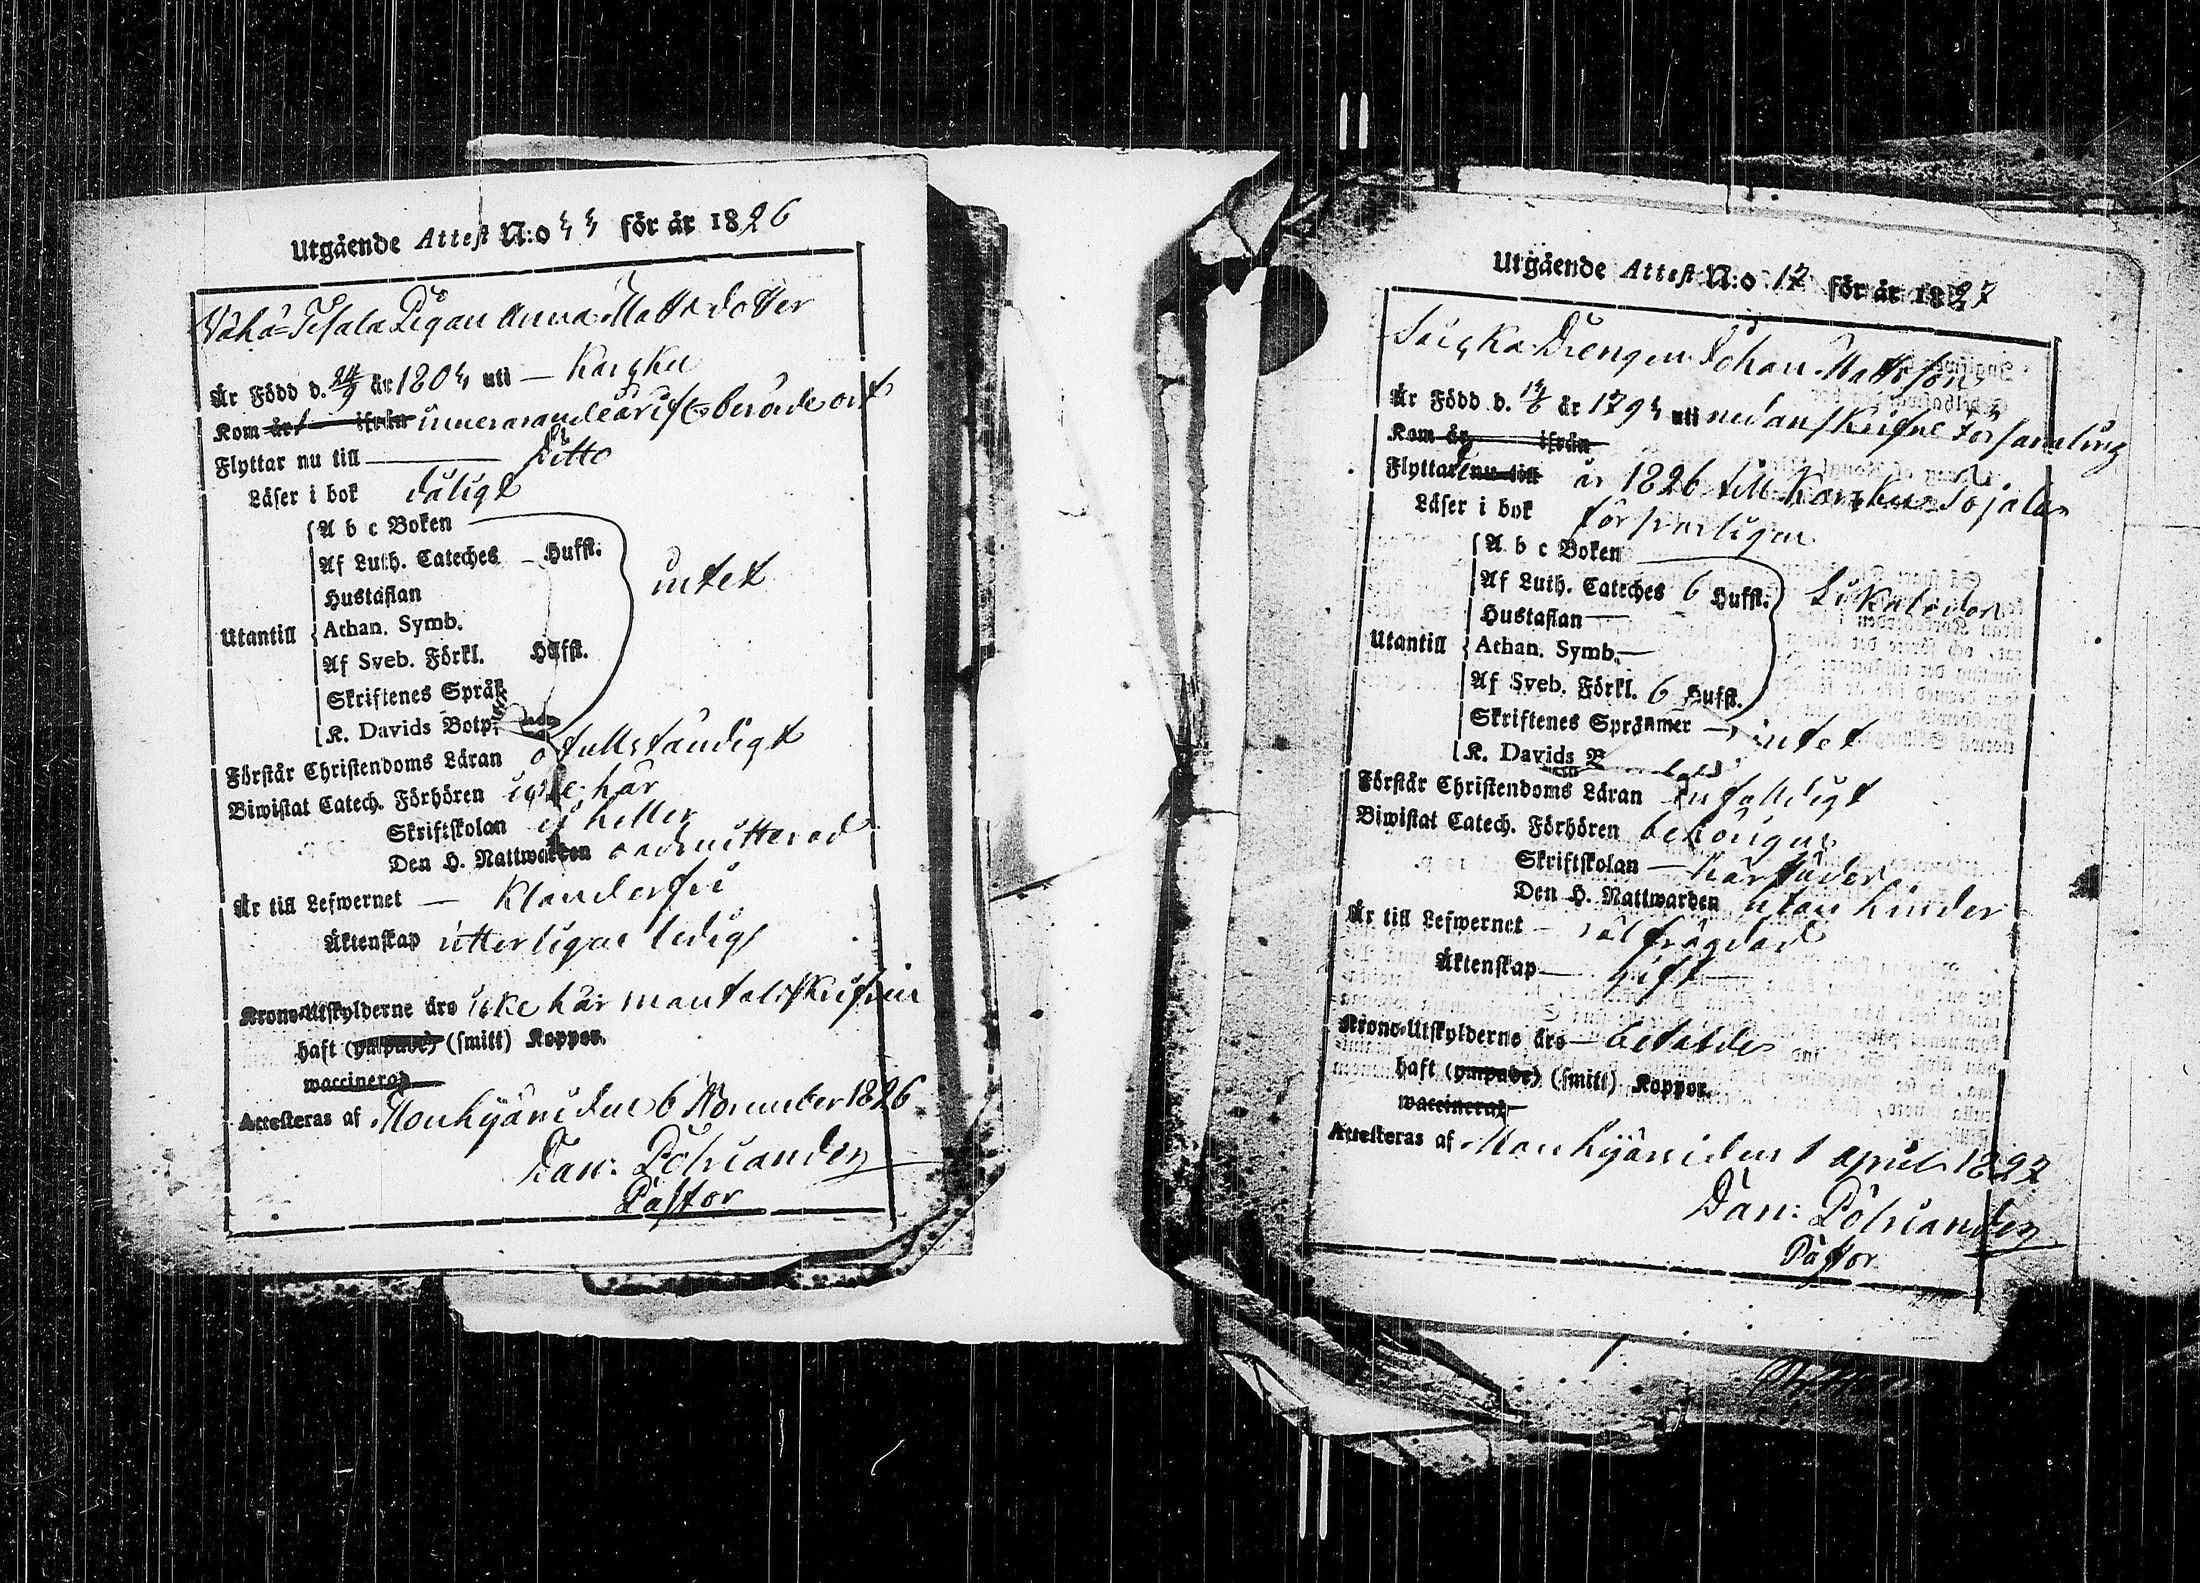 Utgående Attest N:o 55 för år 1826
Wähä-Tisala Pigan Anna Mattsdotter
Är Född d. 24/9 år 1805 uti — Karsku
Kom år ifrån innevarande år ifr. berörde ort
Flyttar nu till — Ditto
Läser i bok dåligt
A b c Boken
Af Luth. Cateches — Hufst.
intet
Hustaflan
Utantill Athan. Symb.
Af Sveb. Förkl. Hufst.
Skriftenes Språk
K. Davids Botp.
Förstår Christendoms Läran ofullständigt
Biwistat Catech. Förhören icke här
Skriftskolan ej heller
Den H. Nattwarden oadmitterad
Är till Lefwernet — Klanderfri
Äktenskap ytterligare ledig
Krono-Utskylderne äro icke här mantalsskrifven
haft (ympade) (smitt) Koppor.
waccinerad
Attesteras af Mouhijärvi den 6 November 1826
Dan: Pölviander
Pastor
Utgående Attest N:o 17 för år 1827
Drengen Johan Mattsson
Är Född d. år 1795 uti nedanskrifne Församling
Kom år ifrån
Flyttade nu till år 1826 till Karkku Sojala
Läser i bok försvarligen
A b c Boken
Af Luth. Cateches 6 Hufst. Likaledes
Hustaflan —
Utantill Athan. Symb. —
Af Sveb. Förkl. 6 Hufst.
Skriftenes Språk — intet
K. Davids B
Förstår Christendoms Läran enfaldigt
Biwistat Catech. Förhören behörigen
Skriftskolan —
Den H. Nattwarden utan hinder
Är till Lefwernet — välfrägdad
Äktenskap — gift —
Krono-Utskylderne äro — betalde
haft (ympade) (smitt) Koppor.
waccinerad
Attesteras af Mouhijärvi den 1 April 1827
Dan: Pölviander
Pastor